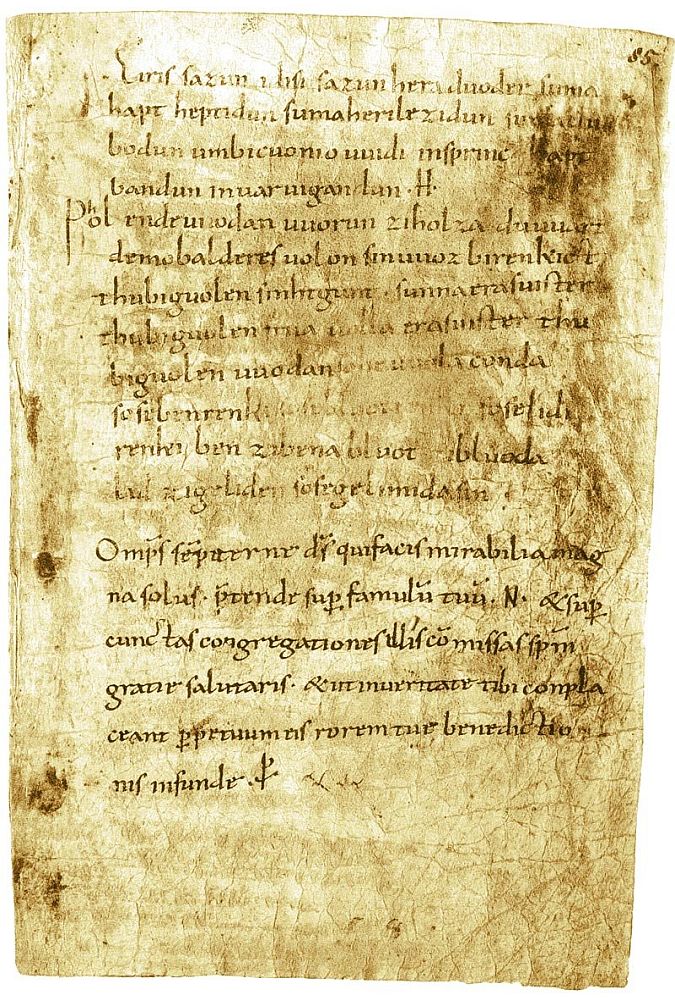 85
Eiris sazun idisi sazun hera duoder suma
hapt heptidun sumaherilezidun sumaclu
bodun umbicuonio uuidi insprinc hapt
bandun inuar uigandun · H·
Phol endeuuodan uuorun ziholza du uuart
demobalderes uolon sinuuoz birenkict
thubiguolen sinhtgunt · sunnaerasuister
thubiguolen friia uolla erasuister thu
biguolen uuodan sohe uuola conda
sosebenrenki sose bluotrenki soselidi
renki ben zibena bluot zibluoda
lid zigeliden sosegelimida sin
Omp̄s sēpiterne ds̄ quifacis mirabilia mag
na solus · p̄tende sup̱ famulū tuū · N · & sup̱
cunctas congregationes illis cōmissas sp̄m
gratie salutaris · & ut inueritate tibi conpla
ceant p̱petuum eis rorem tue benedictio
nis infunde · p̱